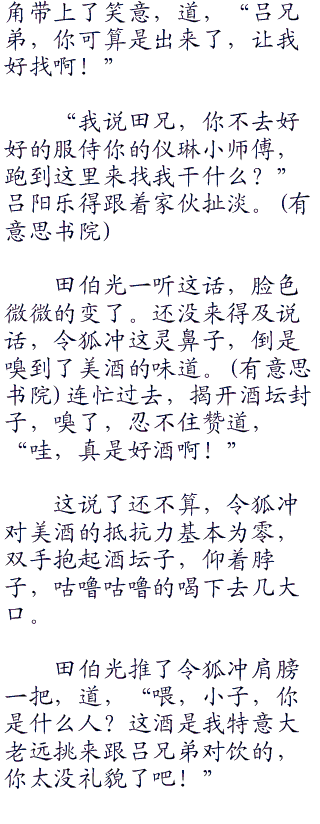 角带上了笑意，道，“吕兄
弟，你可算是出来了，让我
好找啊！”
“我说田兄，你不去好
好的服侍你的仪琳小师傅，
跑到这里来找我干什么？”
吕阳乐得跟着家伙扯淡。(有
意思书院)
田伯光一听这话，脸色
微微的变了。还没来得及说
话，令狐冲这灵鼻子，倒是
嗅到了美酒的味道。(有意思
书院)连忙过去，揭开酒坛封
子，嗅了，忍不住赞道，
“哇，真是好酒啊！”
这说了还不算，令狐冲
对美酒的抵抗力基本为零，
双手抱起酒坛子，仰着脖
子，咕噜咕噜的喝下去几大
口。
田伯光推了令狐冲肩膀
一把，道，“喂，小子，你
是什么人？这酒是我特意大
老远挑来跟吕兄弟对饮的，
你太没礼貌了吧！”